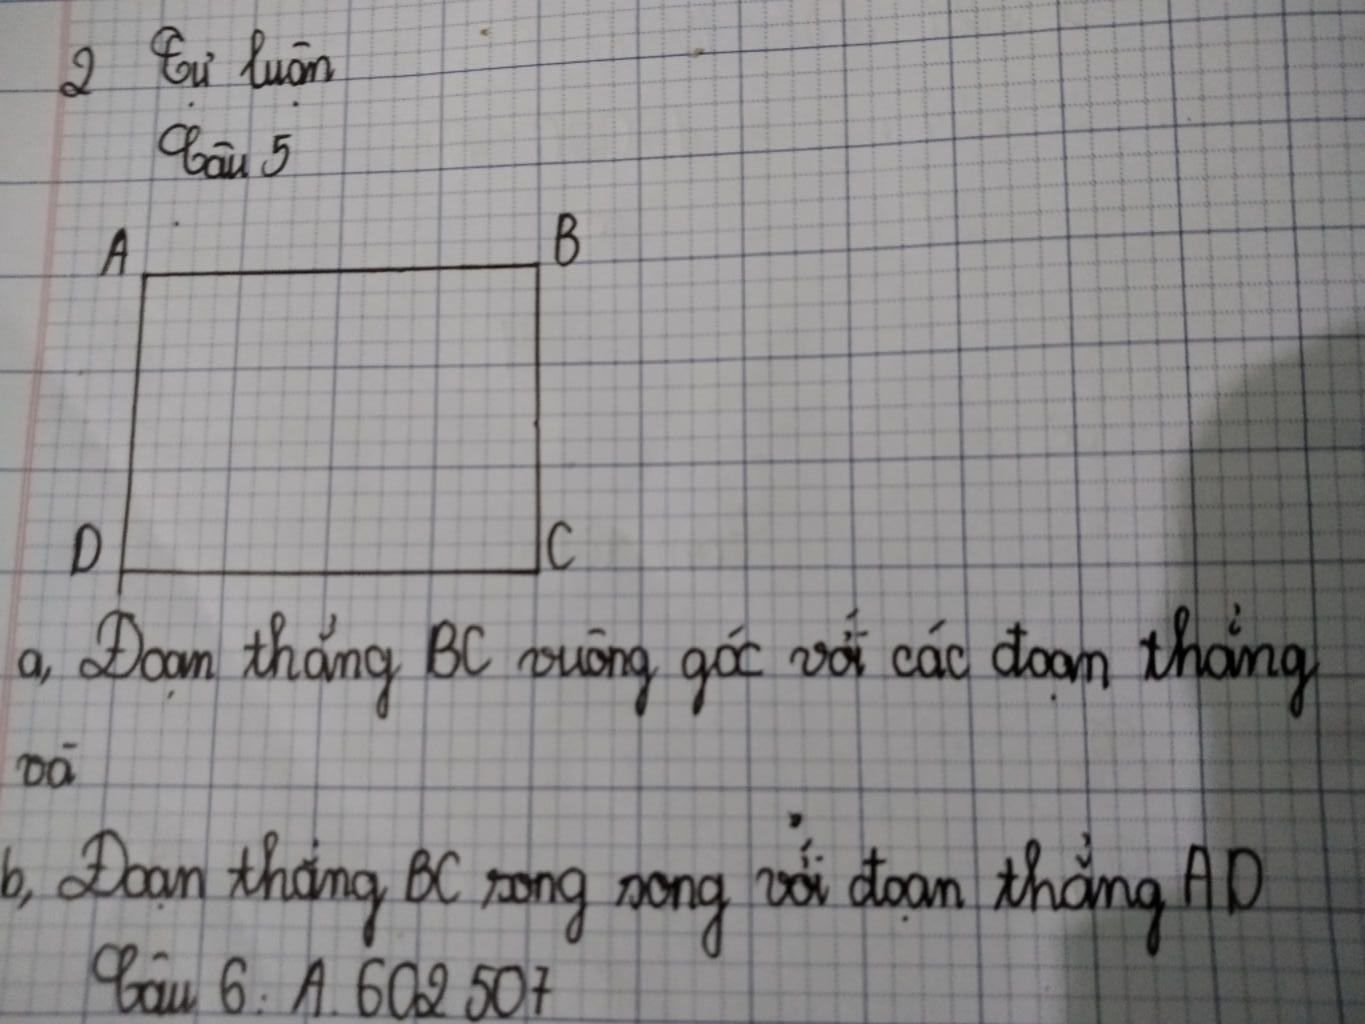 2 Tự luận
Câu 5
A B
D C
a, Đoạn thẳng BC vuông góc với các đoạn thẳng
và
b, Đoạn thẳng BC song song với đoạn thẳng AD
Câu 6: A. 602 507